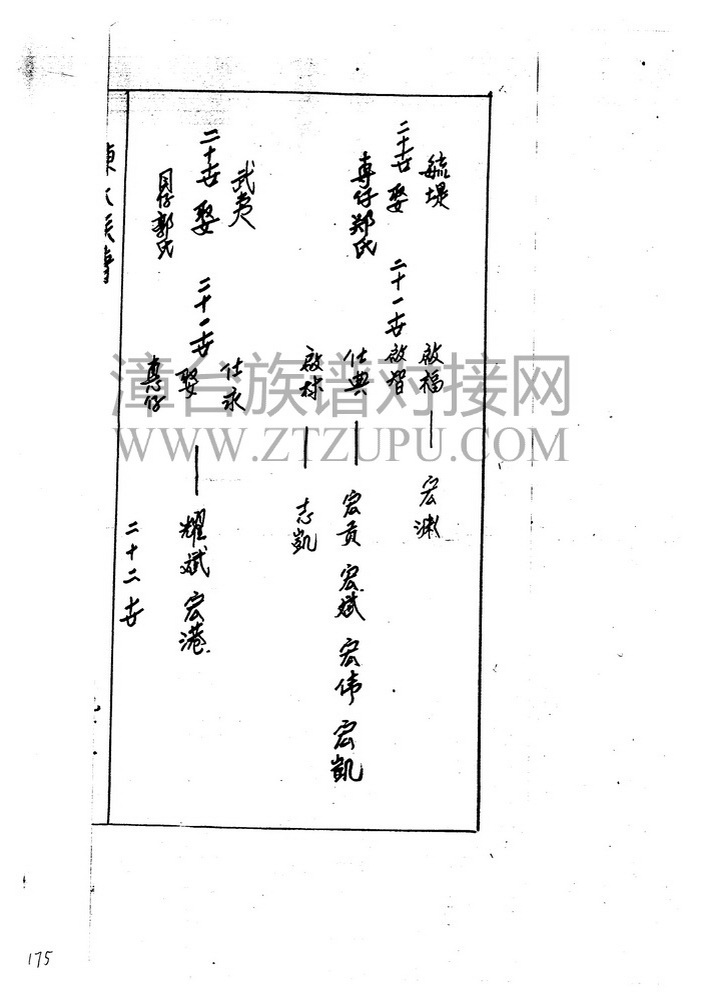 毓堤
二十世娶
專仔鄭氏
二十一世
啟福——宏渊
啟智
仕典——宏貢 宏斌 宏伟 宏凱
啟材——志凱
武夷
二十世娶
郭氏
二十一世娶
仕永
——耀斌 宏港
二十二世
漳台族谱对接网
WWW.ZTZUPU.COM
175